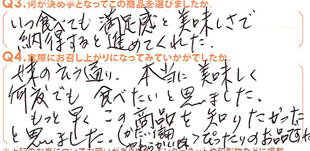 Q3.何が決め手となってこの商品を選びましたか。
いつ食べても満足感と美味しさで
納得すると進めてくれた。
Q4.実際にお召し上がりになってみていかがでしたか。
妹の言う通り、本当に美味しく
何度でも食べたいと思いました。
もっと早くこの商品を知りたかった
と思いました。(かたい 類
やわらかい ぴったりのお品ですね